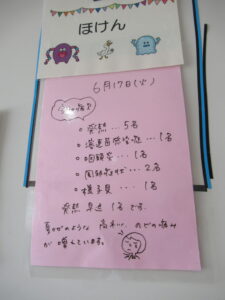 ほけん
6月17日(火)
発熱…5名
溶連菌感染症…1名
…1名
…2名
様子見…1名
発熱 早退 1名です。
夏かぜのような 高ねつ、のどの痛み
が 増えています。